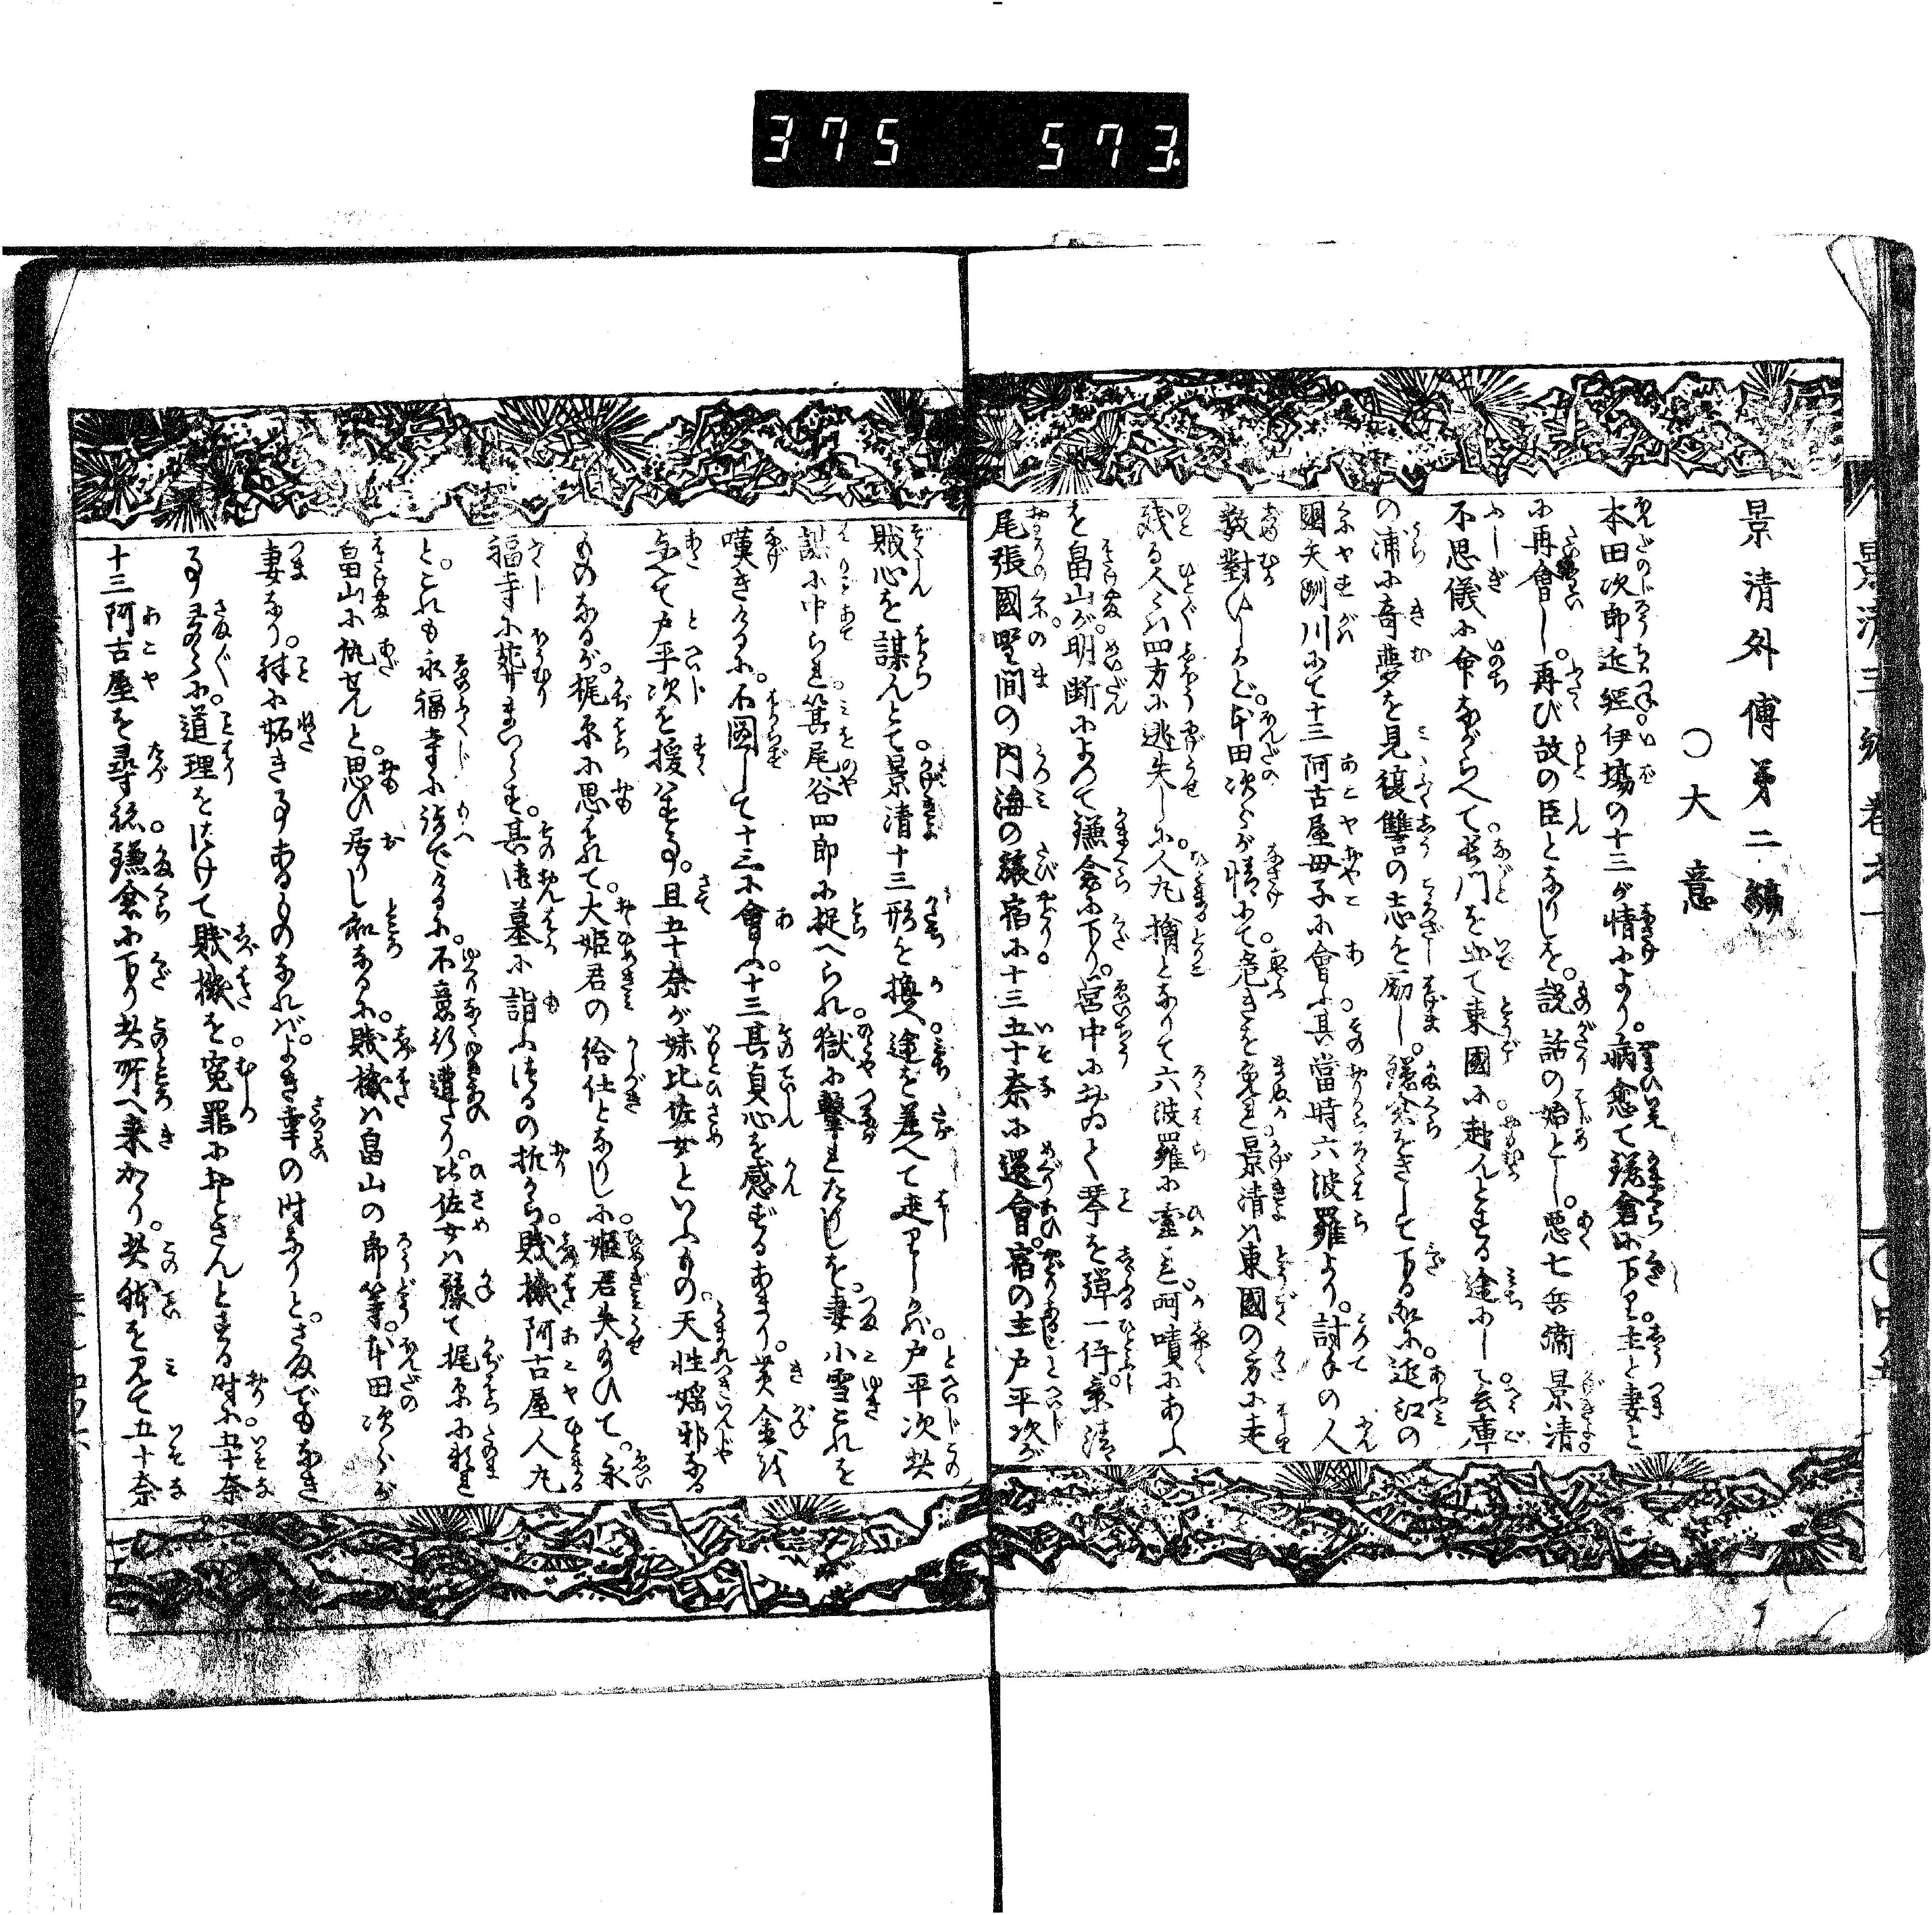 375 573.
景清外傳第二編
〇大意
本田次郎近經伊場の十三が情により。病愈て鎌倉に下り主と妻と
に再會し。再び故の臣となりしを。説話の始とし。悪七兵衛景清
不思儀に命ながらへて。長門を出て東國に赴んとする途にして。兵庫
の浦に奇夢を見復讐の志を励し。鎌倉をさして下る程に。近江の
國矢洲川にて十三阿古屋母子に會ふ其當時六波羅より。討手の人
数對ひしかど。本田次らが情にて。危きを免れ景清は東國の方に走
残る人々は四方に逃失しに。人丸擒となりて六波羅に霊れ呵嘖にあふ
を畠山が明断によつて鎌倉に下り。宮中にゐとく琴を弾一件。景清
尾張國野間の内海の旅宿に十三五十奈に還會。宿の主戸平次が
賊心を謀んとて景清十三形を換へ途を差へて走りしかば。戸平次其
謀に中られ。箕尾谷四郎に捉へられ。獄に繋れたりしを。妻小雪これを
嘆きけるに。不図して十三に會ふ。十三其貞心を感ずるあまり。黄金を
与へて戸平次を援はする事。且五十奈が妹比佐女といふもの。天性婬邪なる
ものなるが。梶原に思はれて。大姫君の給仕となりしに。姫君失給ひて。永
福寺に葬りまゐらす。其御墓に詣ふほるの折から。賎機阿古屋人丸
と。これも永福寺に詣でけるに。不意行遭たり。比佐女は豫て梶原に頼れ
畠山に仇せんと。思ひ居りし程なるに。賎機は畠山の郎等。本田次らが
妻なり。殊に妬き事あるものなれば。よき幸の時なりと。さまでもなき
事さまぐに。道理をはけて賎機を。寃罪におとさんとする時に。五十奈
十三阿古屋を尋ね鎌倉に下り其所へ来かゝり。其体を見て五十奈